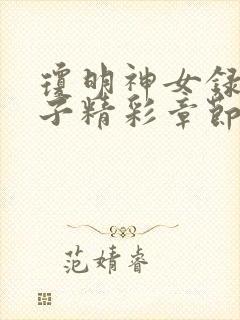 瓊明神女録
子精彩章節
范婧睿